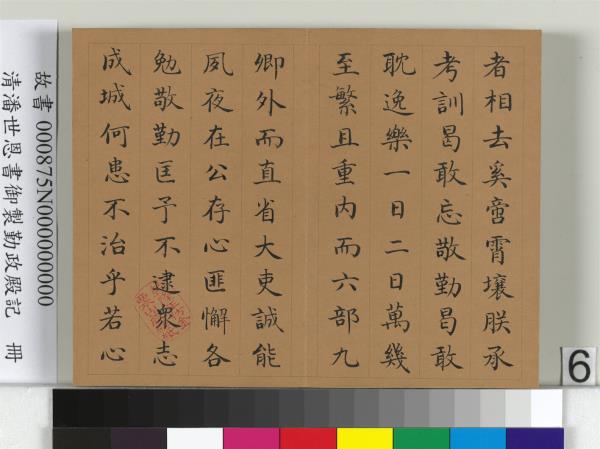 者相去奚啻霄壤朕承
考訓曷敢忘敬勤曷敢
耽逸樂一日二日萬幾
至繁且重內而六部九
卿外而直省大吏誠能
夙夜在公存心匪懈各
勉敬勤匡予不逮衆志
成城何患不治乎若心
故書 000875N000000000
清潘世恩書御製勤政殿記 冊
6